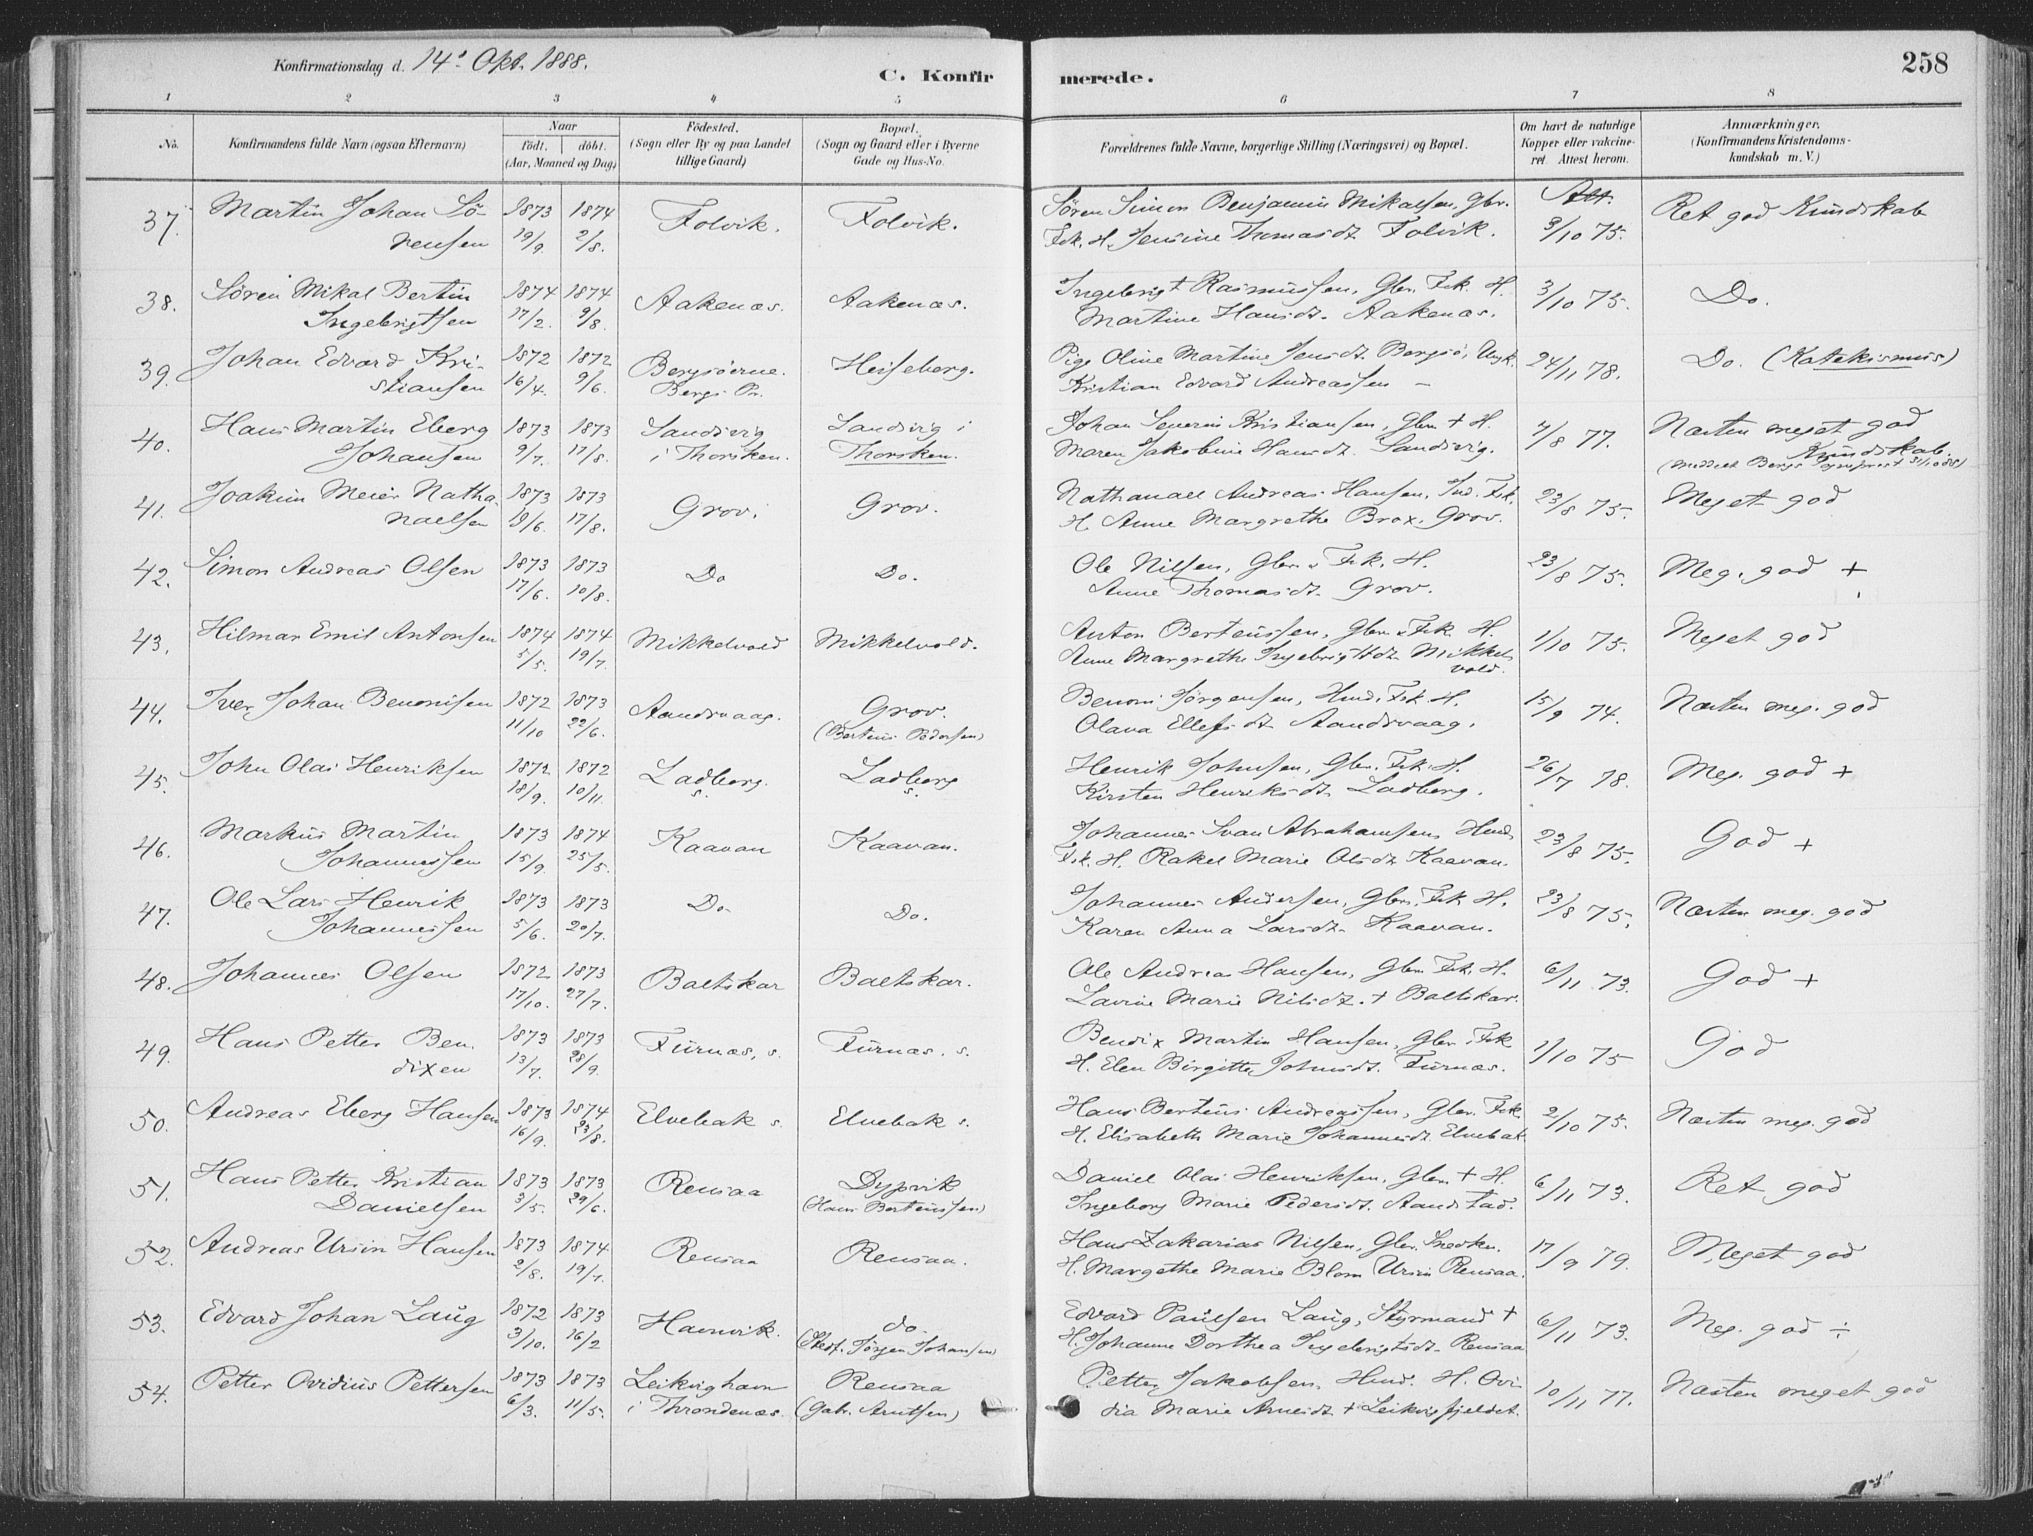 Konfirmationsdag d. 14. Okt. 1888.
C. Konfir merede. 258
1 2 3 4 5 6 7 8
No. Konfirmandens fulde Navn (ogsaa Efternavn) Naar födt. döbt. (Aar, Maaned og Dag) Födested. (Sogn eller By og paa Landet tillige Gaard) Bopæl. (Sogn og Gaard eller i Byerne Gade og Hus-No. Forældrenes fulde Navne, borgerlige Stilling (Næringsvei) og Bopæl. Om havt de naturlige Kopper eller vakcineret. Attest herom. Anmærkninger. (Konfirmandens Kristendomskundskab m. V.)
37. Martin Johan Sö- 1873 1874 Folvik. Folvik. Sören Simon Benjamin Mikalsen, Gbr. Att. Ret god Kundskab
rensen 19/9 2/8. Fsk. H. Jensine Thomasdt. Folvik. 3/10 75.
38. Sören Mikal Bertin 1874 1874 Aakenæs. Aakenæs. Ingebrigt Rasmussen, Gbr. Fsk. H. 3/10 75. Do.
Ingebrigtsen 17/2. 9/8. Martine Hansdt. Aakenæs.
39. Johan Edvard Kri- 1872 1872 Bergsöerne. Heiseberg. Pige Oline Martine Jensdt. Bergsö, Ungk. 24/11 78. Do. (Katekismus)
stiansen 16/4. 9/6. Bergs Pr. Kristian Edvard Andreassen –
40. Hans Martin Eberg 1873 1873 Sandvig Sandvig i Johan Severin Kristiansen, Gbr. + H. 7/8 77. Næsten meget god
Johansen 9/7. 17/8. i Thorsken. Thorsken. Maren Jakobine Hansdt. Sandvig. Kundskab.
41. Joakim Meier Natha- 1873 1873 Grov. Grov. Nathanael Andreas Hansen, Ind. Fsk. 23/8 75. Meget god
naelsen 19/6. 17/8. H. Anne Margrethe Brox. Grov.
42. Simon Andreas Olsen 1873 1873 Do Do. Ole Nilsen, Gbr. Fsk. H. 23/8 75. Meg. god +
17/6. 10/8. Anne Thomasdt. Grov.
43. Hilmar Emil Antonsen 1874 1874 Mikkelvold Mikkelvold. Anton Berteussen, Gbr. Fsk. H. 1/10 75. Meget god
5/5. 19/7. Anne Margrethe Ingebrigtsdt. Mikkel
vold.
44. Iver Johan Benonisen 1872 1873 Aandsvaag. Grov. Benoni Jörgensen, Husm. Fsk. H. 15/9 74. Næsten meg. god
11/10 22/6. (Berteus Pedersen) Olava Ellefsdt. Aandsvaag.
45. John Olai Henriksen 1872 1872 Ladberg. s. Ladberg s. Henrik Johnsen, Gbr. Fsk. H. 26/7 78. Meg. god +
18/9. 10/11. Kirsten Henriksdt. Ladberg.
46. Markus Martin 1873 1874 Kaavan Kaavan. Johannes Ivan Abrahamsen, Husm. 23/8 75. God +
Johannessen 15/9. 25/5. Fsk. H. Rakel Marie Olsdt. Kaavan.
47. Ole Lars Henrik 1873 1873 Do Do. Johannes Andersen, Gbr. Fsk. H. 23/8 75. Næsten meg. god
Johannessen 5/6. 20/7. Karen Anna Larsdt. Kaavan.
48. Johannes Olsen 1872 1873 Baltskar Baltskar. Ole Andreas Hansen, Gbr. Fsk. H. 6/11 73. God +
17/10. 27/7. Lavine Marie Nilsdt. + Baltskar.
49. Hans Petter Ben- 1873 1873 Furnæs, s. Furnæs, s. Bendix Martin Hansen, Gbr. Fsk 1/10 75 God
dixen 13/7. 28/9. H. Elen Birgitte Johnsdt. Furnæs.
50. Andreas Eberg Hansen 1873 1874 Elvebak s. Elvebak s. Hans Berteus Andreassen, Gbr. Fsk. 2/10 75. Næsten meg. god
16/9. 23/8. H. Elisabeth Marie Johannesdt. Elvebak
51. Hans Petter Kristian 1873 1873 Rensaa Dypvik Daniel Olai Henriksen, Gbr. + H. 6/11 73. Ret god
Danielsen 3/5. 29/6. (Hans Berteussen) Ingeborg Marie Pedersdt. Aandstad.
52. Andreas Ursin Hansen 1873 1874 Rensaa Rensaa. Hans Zakarias Nilsen, Gbr. Snedker. 17/9 79. Meget god
2/8. 19/7. H. Margethe Marie Blom Ursin Rensaa.
53. Edvard Johan Laug 1872 1873 Havnvik. do. Edvard Paulsen Laug, Styrmand + 6/11 73. Meg. god ÷
3/10. 16/2 (Stedf. Jörgen Johansen) H. Johanne Dorthea Ingebrigtsdt. Rensaa
54. Petter Ovidius Pettersen 1873 1873 Leikvighavn Rensaa Petter Jakobsen Husm. H. Ovi- 10/11 77. Næsten meget god
6/3. 11/5. i Throndenæs. (Gab. Arntsen) dia Marie Arnesdt. + Leikvigfjeldet.